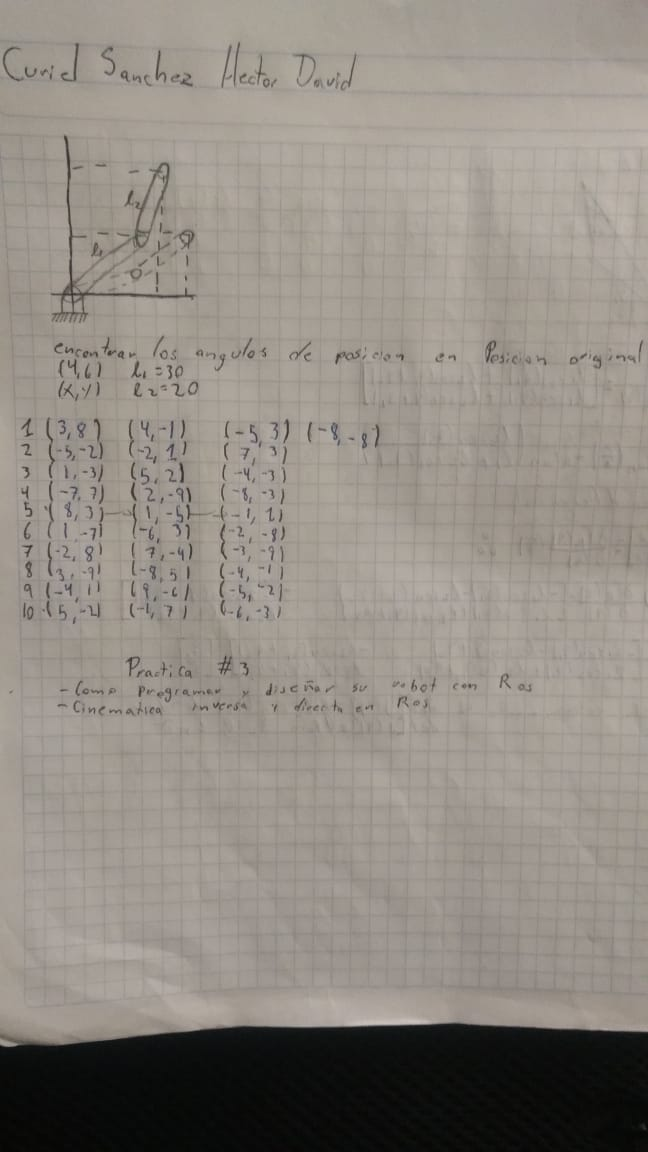 Curiel Sanchez Hector David
l2
l1
encontrar los angulos de posicion en Posicion original
(4,6) l1 = 30
(x,y) l2 = 20
1 (3,8) (4,-1) (-5,3) (-8,-8)
2 (-5,-2) (-2,1) (7,3)
3 (1,-3) (5,2) (-4,-3)
4 (-7,7) (2,-9) (-8,-3)
5 (8,3) (1,-5) (-1,1)
6 (1,-7) (-6,3) (-2,-8)
7 (-2,8) (7,-4) (-3,-9)
8 (3,-9) (-8,5) (-4,-1)
9 (-4,1) (9,-6) (-5,-2)
10 (5,-2) (-1,7) (-6,-3)
Practica #3
- Como programar y diseñar su robot con Ros
- Cinematica inversa y directa en Ros